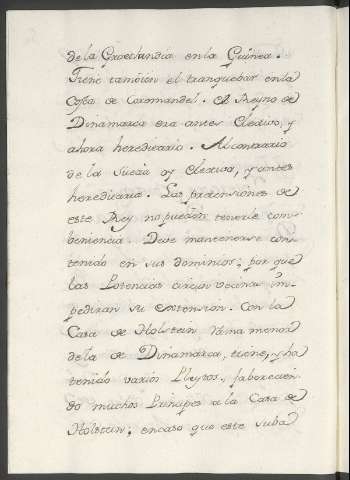 de la Groetlandia en la Guinea.
Tiene tambien el tranquebar en la
Costa de Coromandel. El Reyno de
Dinamarca era antes Electivo, y
ahora hereditario. Al contrario
de la Suecia oy Electiva, y antes
hereditaria. Las pretensiones de
este Rey no pueden tenerle con-
beniencia. Deve mantenerse con-
tenido en sus dominios, por que
las Potencias circun vecinas im-
pediran su extension. Con la
Casa de Holstein Rama menor
de la de Dinamarca, tiene, y ha
tenido varios Pleytos, faborecien-
do muchos Principes a la Casa de
Holstein; en caso que este suba